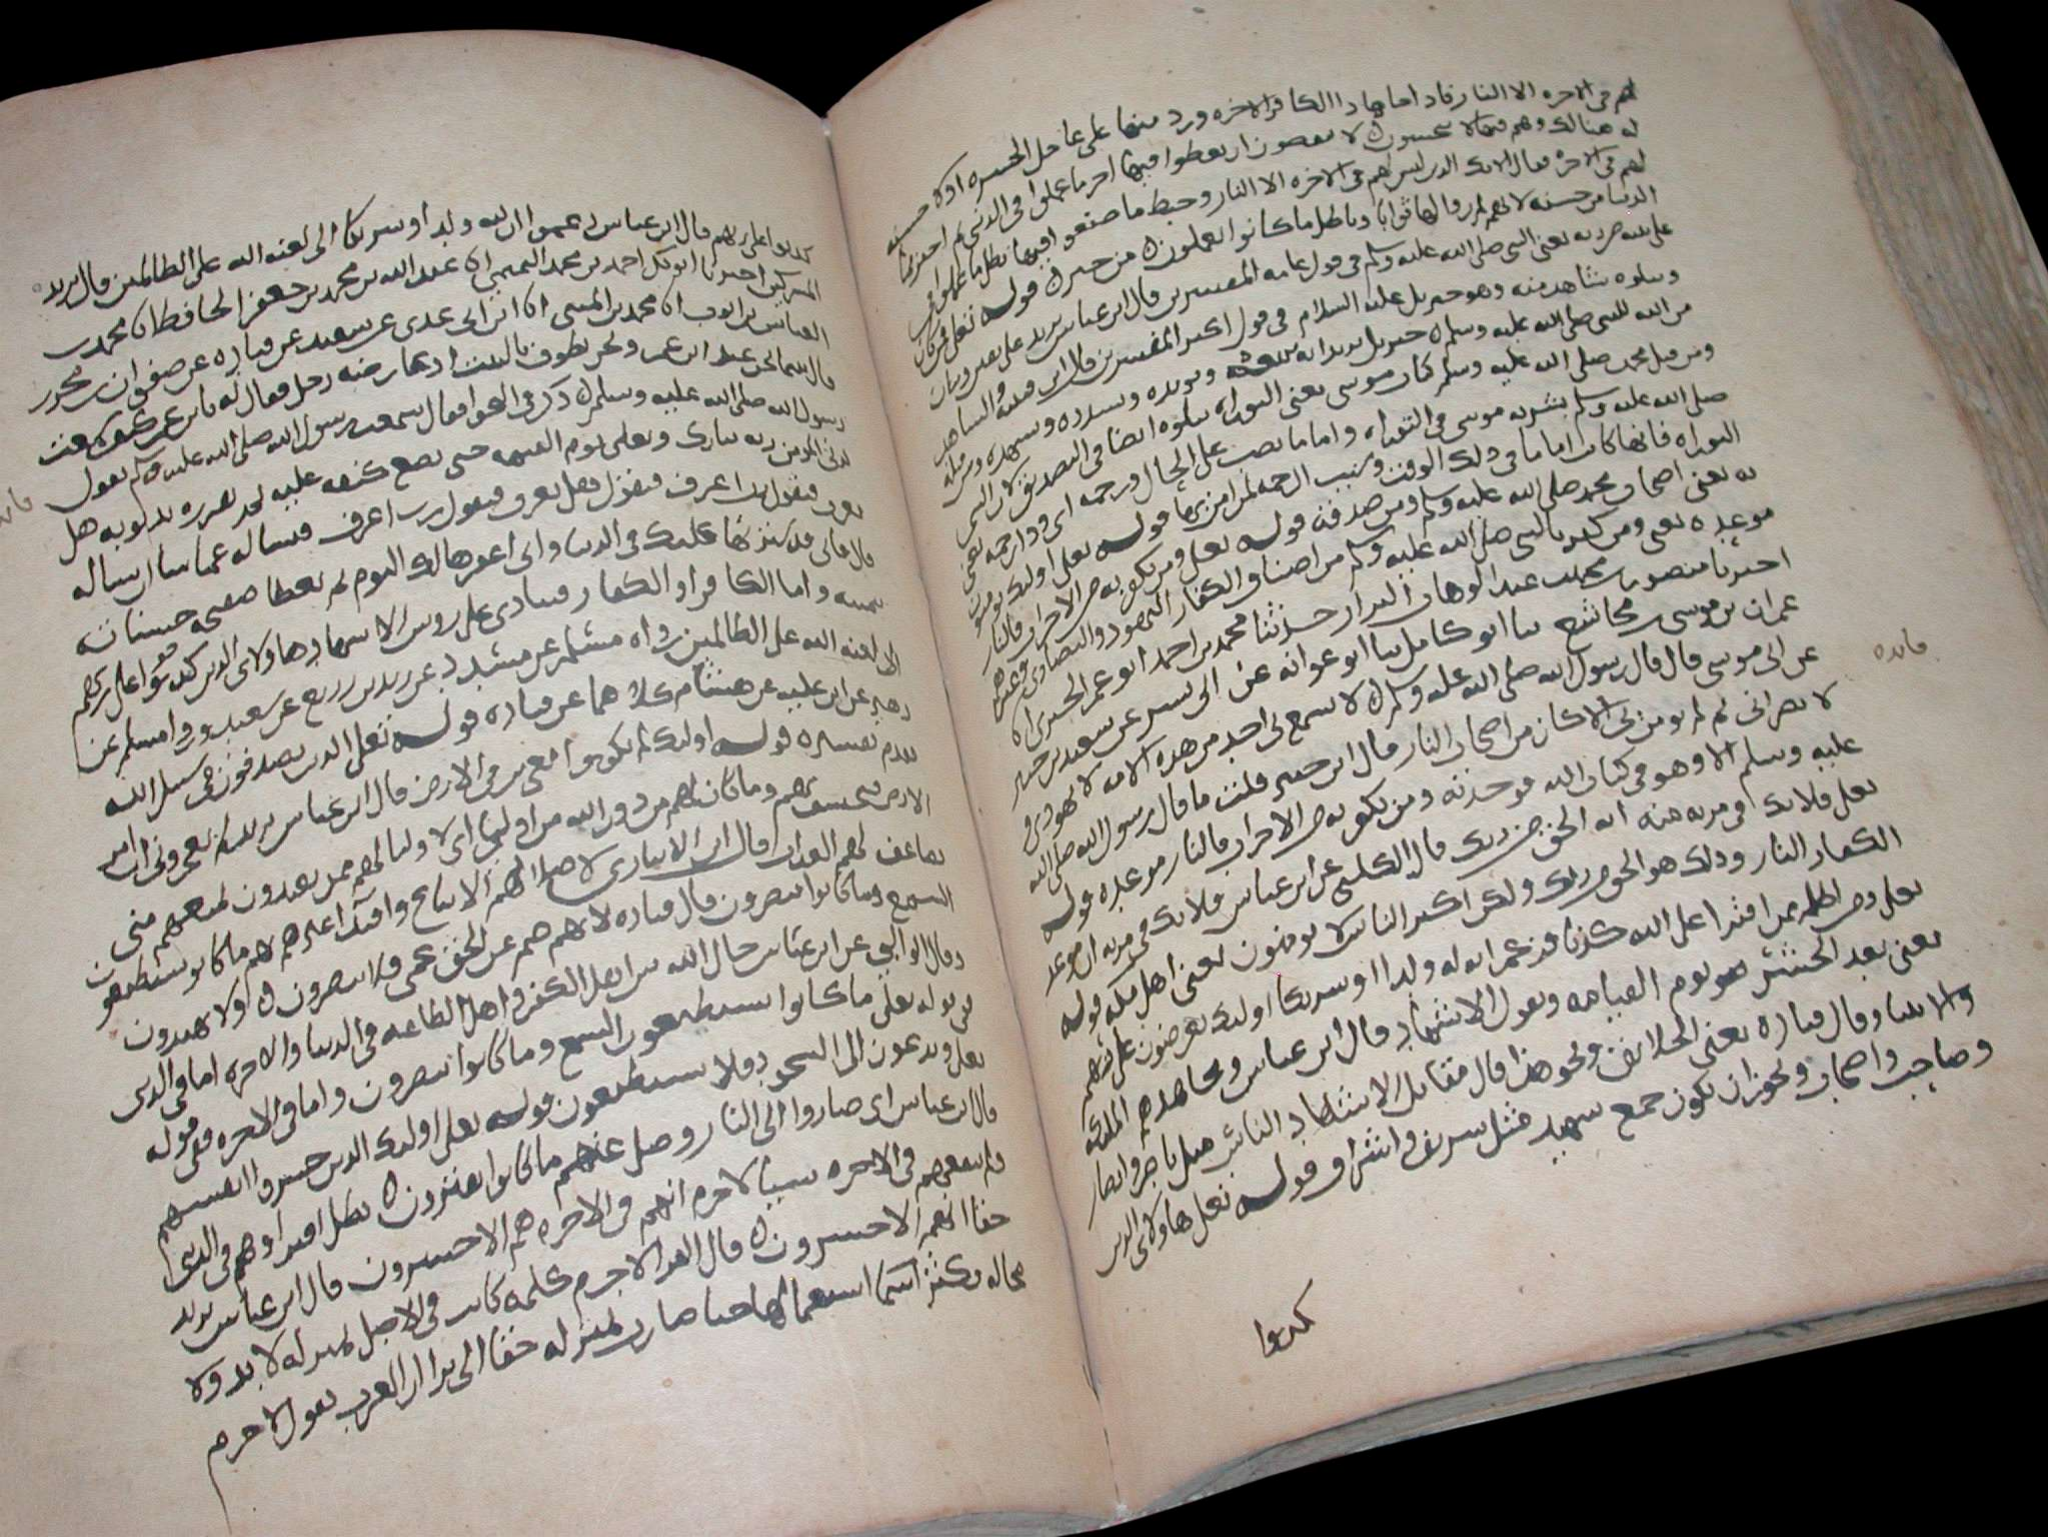 لهم في الاخره الا النار فاد اما هادا الكافر الاخره ورد منها على عاجل الحسره اولا حسنه
له هنالك وهم فيها لا يبخسون لا ينقصون
لهم في الاخره فقال اولئك الذين ليس لهم في الاخره الا النار وحبط ما صنعوا فيها بطل ما عملوا في
الدنيا من حسنه لانهم لم يروا لها ثوابا وباطل ما كانوا يعملون من خير قوله تعلى افمن كان
على بينه من ربه يعني النبي صلى الله عليه وسلم في قول عامه المفسرين قال ابن عباس يريد على يقين وبيان
ويتلوه شاهد منه وهو جبريل عليه السلام في قول اكثر المفسرين
من الله للنبي صلى الله عليه وسلم جبريل يريد انه يتبعه ويويده ويسدده ويشهده ومن قبله
ومن قبل محمد صلى الله عليه وسلم كتاب موسى يعني التوراه يتلوه ايضا في التصديق لان النبي
صلى الله عليه وسلم بشر به موسى في التوراه واماما نصب على الحال ورحمه اي وذا رحمه يعني
التوراه فانها كانت اماما في ذلك الوقت وسبب الرحمه لمن امن بها قوله تعلى اولئك يومنون
به يعني اصحاب محمد صلى الله عليه وسلم ومن صدقه قوله تعلى ومن يكفر به من الاحزاب فالنار
موعده يعني ومن كفر بالنبي صلى الله عليه وسلم من اصناف الكفار اليهود والنصارى وغيرهم
اخبرنا منصور بن عبد الوهاب البزار حدثنا محمد بن احمد ابو عمر الحيري انا
عمران بن موسى بن مجاشع نا ابو كامل نا ابو عوانه عن ابي بشر عن سعيد بن جبير
عن ابي موسى قال قال رسول الله صلى الله عليه وسلم لا يسمع بي احد من هذه الامه لا يهودي و
لا نصراني ثم لم يومن بي الا كان من اصحاب النار قال ابن جبير قلت ما قال رسول الله صلى الله
عليه وسلم الا وهو في كتاب الله فوجدته ومن يكفر به من الاحزاب فالنار موعده قوله
تعلى فلا تك في مريه منه انه الحق من ربك قال الكلبي عن ابن عباس فلا تك في مريه ان موعد
الكفار النار وذلك هو الحق من ربك ولكن اكثر الناس لا يومنون يعني اهل مكه قوله
تعلى ومن اظلم ممن افترا على الله كذبا فزعم ان له ولدا او شريكا اولئك يعرضون على ربهم
يعني بعد الحشر يوم القيامه ويقول الاشهاد قال ابن عباس ومجاهد هم الملائكه
والانبيا وقال قتاده يعني الخلائق ونحو هذا قال مقاتل الاشهاد الناس مثل ناصر وانصار
وصاحب واصحاب ويجوز ان يكون جمع شهيد مثل شريف واشراف قوله تعلى هاولاى الذين
كذبوا
فايده
كذبوا على ربهم قال ابن عباس زعموا ان لله ولدا وشريكا الى لعنه الله على الظالمين قال يريد
المشركين اخبرنا ابو بكر احمد بن محمد التميمي انا عبد الله بن محمد بن جعفر الحافظ انا محمد بن
العباس بن ايوب انا محمد بن المثنى انا ابن ابي عدي عن سعيد عن قتاده عن صفوان بن محرز
قال بينما نحن عند ابن عمر ونحن نطوف بالبيت اذ عارضه رجل فقال له يابن عمر كيف سمعت
رسول الله صلى الله عليه وسلم ذكر في النجوا فقال سمعت رسول الله صلى الله عليه وسلم يقول
يدنى المومن ربه تبارك وتعلى يوم القيمه حتى يضع كنفه عليه ثم يقرره بذنوبه هل
تعرف فيقول رب اعرف فيقول هل تعرف فيقول رب اعرف فيساله عما شا ان يساله
قال فاني قد سترتها عليك في الدنيا واني اغفرها لك اليوم ثم يعطا صحيفه حسناته
بيمينه واما الكافر او الكفار فينادى على روس الاشهاد هاولاى الذين كذبوا على ربهم
الا لعنه الله على الظالمين رواه مسلم عن مسدد عن يزيد بن زريع عن سعيد ورواه مسلم عن
زهير عن ابن عليه عن هشام كلاهما عن قتاده قوله تعلى الذين يصدون عن سبيل الله
تقدم تفسيره قوله اولئك لم يكونوا معجزين في الارض قال ابن عباس يريد لم يعجزوني ان امر
الارض فتخسف بهم وما كان لهم من دون الله من اوليا اى لا وليا لهم ممن يعبدون يمنعهم مني
يضاعف لهم العذاب قال ابن الانباري لاضلالهم الاتباع واقتدا غيرهم بهم ما كانوا يستطيعون
السمع وما كانوا يبصرون قال قتاده لانهم صم عن الحق عمي فلا يبصرون ولا يهتدون
وقال الوالبي عن ابن عباس حال الله بين اهل الكفر واهل الطاعه في الدنيا والاخره اما في الدنيا
ففي قوله تعلى ما كانوا يستطيعون السمع وما كانوا يبصرون واما في الاخره ففي قوله
تعلى ويدعون الى السجود فلا يستطيعون قوله تعلى اولئك الذين خسروا انفسهم
قال ابن عباس اى صاروا الى النار وضل عنهم ما كانوا يفترون بطل افتراوهم في الدنيا
فلم ينفعهم في الاخره شيا لا جرم انهم في الاخره هم الاخسرون قال ابن عباس يريد
حقا انهم الاخسرون قال الفرا لا جرم كلمه كانت في الاصل بمنزله لا بد ولا
محاله فكثر استعمالها حتا صارت بمنزله حقا الا ترا ان العرب تقول لا جرم